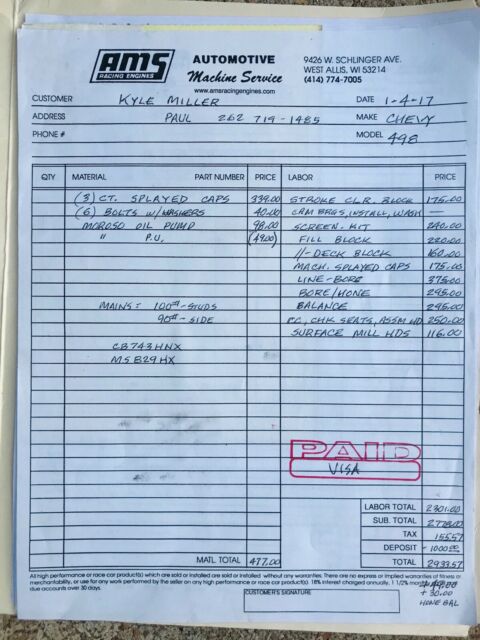 AMS
RACING ENGINES
AUTOMOTIVE
Machine Service
www.amsracingengines.com
9426 W. SCHLINGER AVE.
WEST ALLIS, WI 53214
(414) 774-7005
CUSTOMER KYLE MILLER DATE 1-4-17
ADDRESS PAUL 262 719-1485 MAKE CHEVY
PHONE # MODEL 498
QTY MATERIAL PART NUMBER PRICE LABOR PRICE
(3) CT. SPLAYED CAPS 339.00 STROKE CLR. BLOCK 175.00
(6) BOLTS W/WASHERS 40.00 CAM BRGS, INSTALL, WASH —
MOROSO OIL PUMP 98.00 SCREEN-KIT 240.00
" P.U. (49.00) FILL BLOCK 220.00
//-DECK BLOCK 160.00
MACH. SPLAYED CAPS 175.00
LINE-BORE 375.00
BORE/HONE 295.00
MAINS = 100# - STUDS BALANCE 295.00
90# - SIDE CC, CHK SEATS, ASSM HD 250.00
SURFACE MILL HDS 116.00
CB743HNX
MS829HX
PAID
VISA
LABOR TOTAL 2301.00
SUB. TOTAL 2778.00
TAX 155.57
DEPOSIT -1000.00
MATL TOTAL 477.00 TOTAL 2933.57
All high performance or race car product(s) which are sold or installed are sold or installed without any warranties. There are no express or implied warranties of fitness or
merchantability, or use for any work performed by the seller on any high performance or race car product(s). 18% interest charged annually, 1 1/2% month
due accounts over 30 days.
+ 49.00
+ 30.00
HONE BAL
CUSTOMER'S SIGNATURE